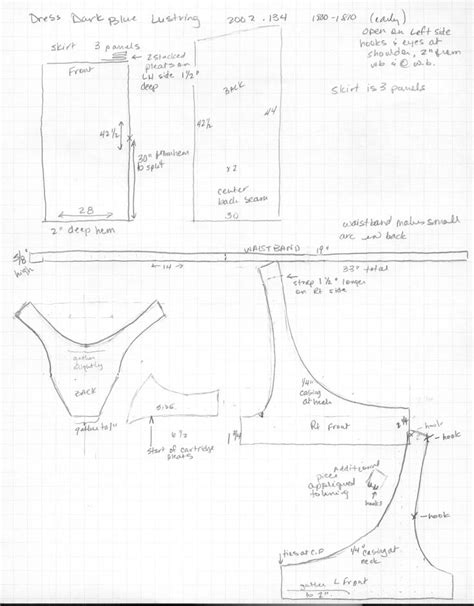 Dress Dark Blue Lustring 2002.134 1800-1810 (early)
open on Left side
hooks & eyes at
shoulder, 2" from
w.b. & @ w.b.
skirt 3 panels
2 stacked
pleats on
LH side 1½"
deep
Front
Back
skirt is 3 panels
42½
42½
44
30" from hem
to split
x2
center
back seam
28
30
2" deep hem
waistband makes small
arc in back
WAISTBAND 19"
5/8"
high
14
33" total
strap 1½" longer
on Rt side
gather
slightly
BACK
gather to 1"
SIDE
6½
start of cartridge
pleats
¼"
casing
at neck
1¾
Rt Front
2¼
hook
hook
Additional
piece
appliqued
to lining
hooks
hook
ties at C.F.
¼" casing at
neck
gather L Front
to 2"